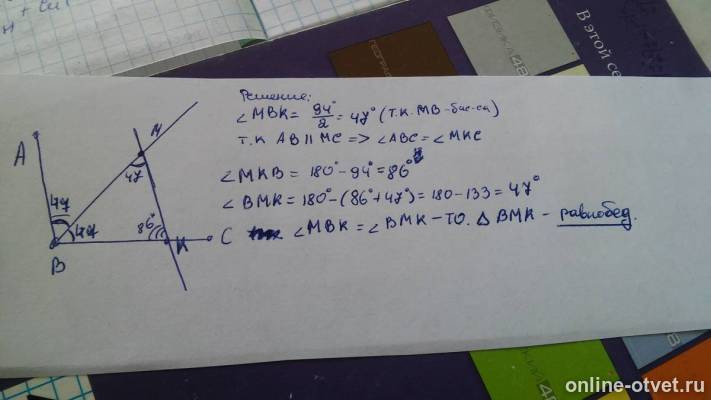 В этой се
Решение:
∠MBK = 94°/2 = 47° (т.к. MB – бис-са)
т.к AB || MC => ∠ABC = ∠MKC
∠MKB = 180° – 94° = 86°
∠BMK = 180° – (86° + 47°) = 180 – 133 = 47°
∠MBK = ∠BMK – то. △ BMK – равнобед.
A
M
47
47
47
86°
B
K
C
online-otvet.ru